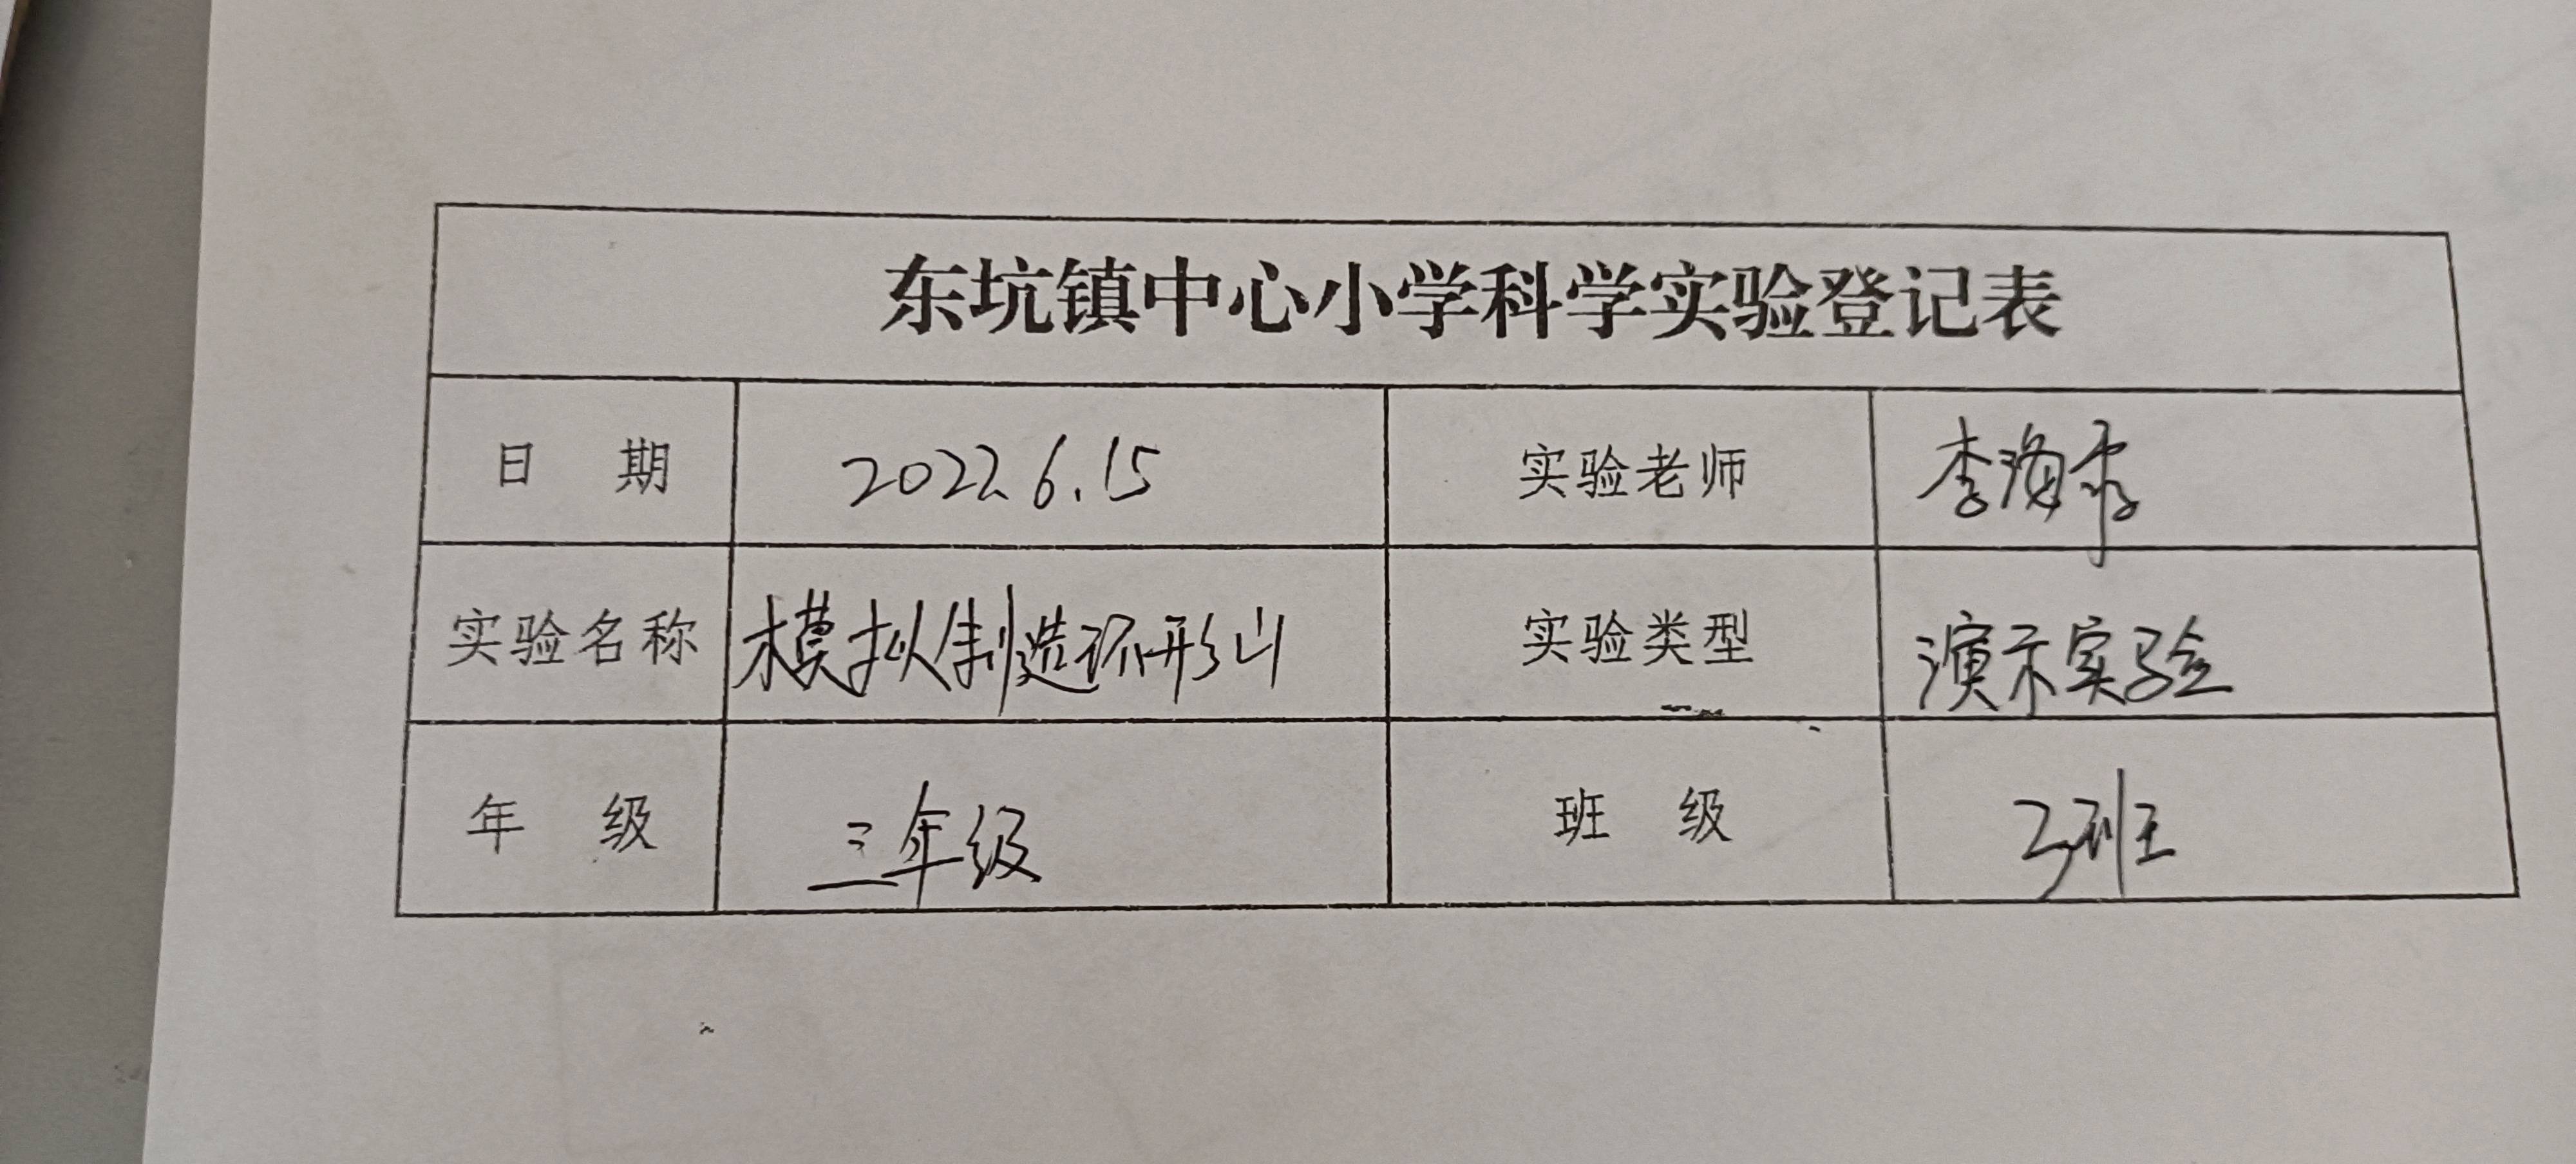 东坑镇中心小学科学实验登记表
日 期 2022.6.15 实验老师 李海
实验名称 模拟制造环形山 实验类型 演示实验
年 级 三年级 班 级 3班